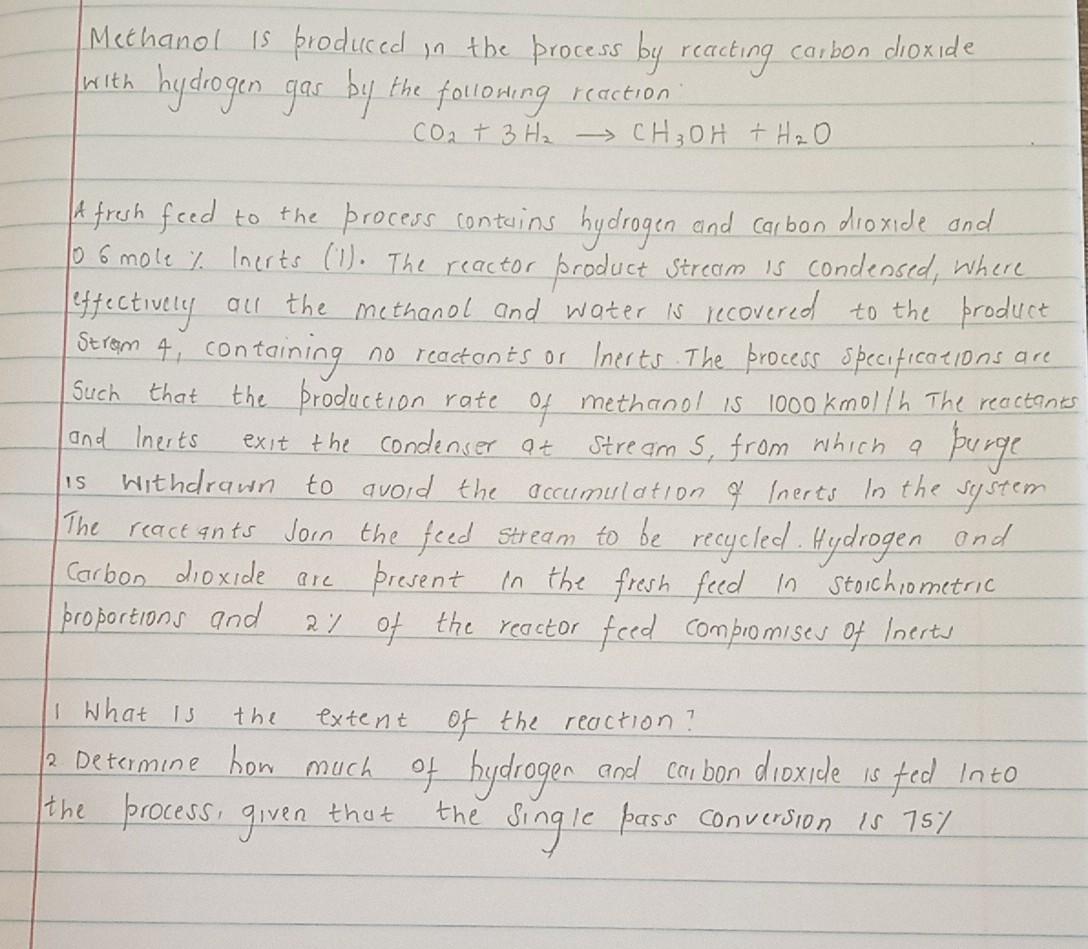 Methanol is produced in the process by reacting carbon dioxide
with hydrogen gas by the following reaction:
CO₂ + 3H₂ → CH₃OH + H₂O
A fresh feed to the process contains hydrogen and carbon dioxide and
0.6 mole % Inerts (I). The reactor product stream is condensed, where
effectively all the methanol and water is recovered to the product
Stream 4, containing no reactants or Inerts. The process specifications are
Such that the production rate of methanol is 1000 kmol/h The reactants
and Inerts exit the condenser at stream 5, from which a purge
is withdrawn to avoid the accumulation of Inerts in the system
The reactants Join the feed stream to be recycled. Hydrogen and
Carbon dioxide are present in the fresh feed in stoichiometric
proportions and 2% of the reactor feed compromises of Inerts
1 What is the extent of the reaction?
2 Determine how much of hydrogen and carbon dioxide is fed into
the process, given that the single pass conversion is 75%